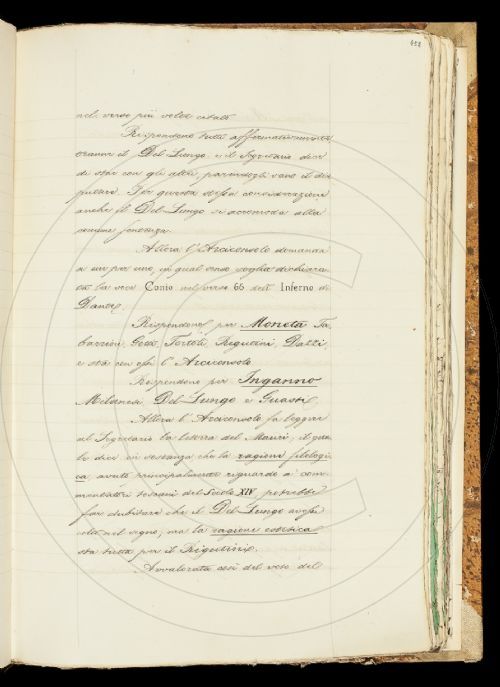 458
nel verso più volte citato.
Rispondono tutti affermativamente
tranne il Del Lungo e il Segretario dice
di star con gli altri, parendogli vano il dis
putare. Per questa stessa considerazione
anche il Del Lungo si accomoda alla
comune sentenza.
Allora l'Arciconsolo domanda
a uno per uno, in qual senso voglia dichiara
ta la voce Conio nel verso 66 dell'Inferno di
Dante.
Rispondono per Moneta Ta
barrini, Gotti, Tortoli, Rigutini, Dazzi,
e sta con essi l'Arciconsolo.
Rispondono per Inganno
Milanesi, Del Lungo e Guasti.
Allora l'Arciconsolo fa leggere
al Segretario la lettera del Mauri, il qua
le dice in sostanza che la ragione filologi
ca, avuto principalmente riguardo ai com
mentatori toscani del Secolo XIV, potrebbe
far dubitare che il Del Lungo avesse
colto nel segno; ma la ragione estetica
sta tutta per il Rigutini.
Avvalorata così del voto del